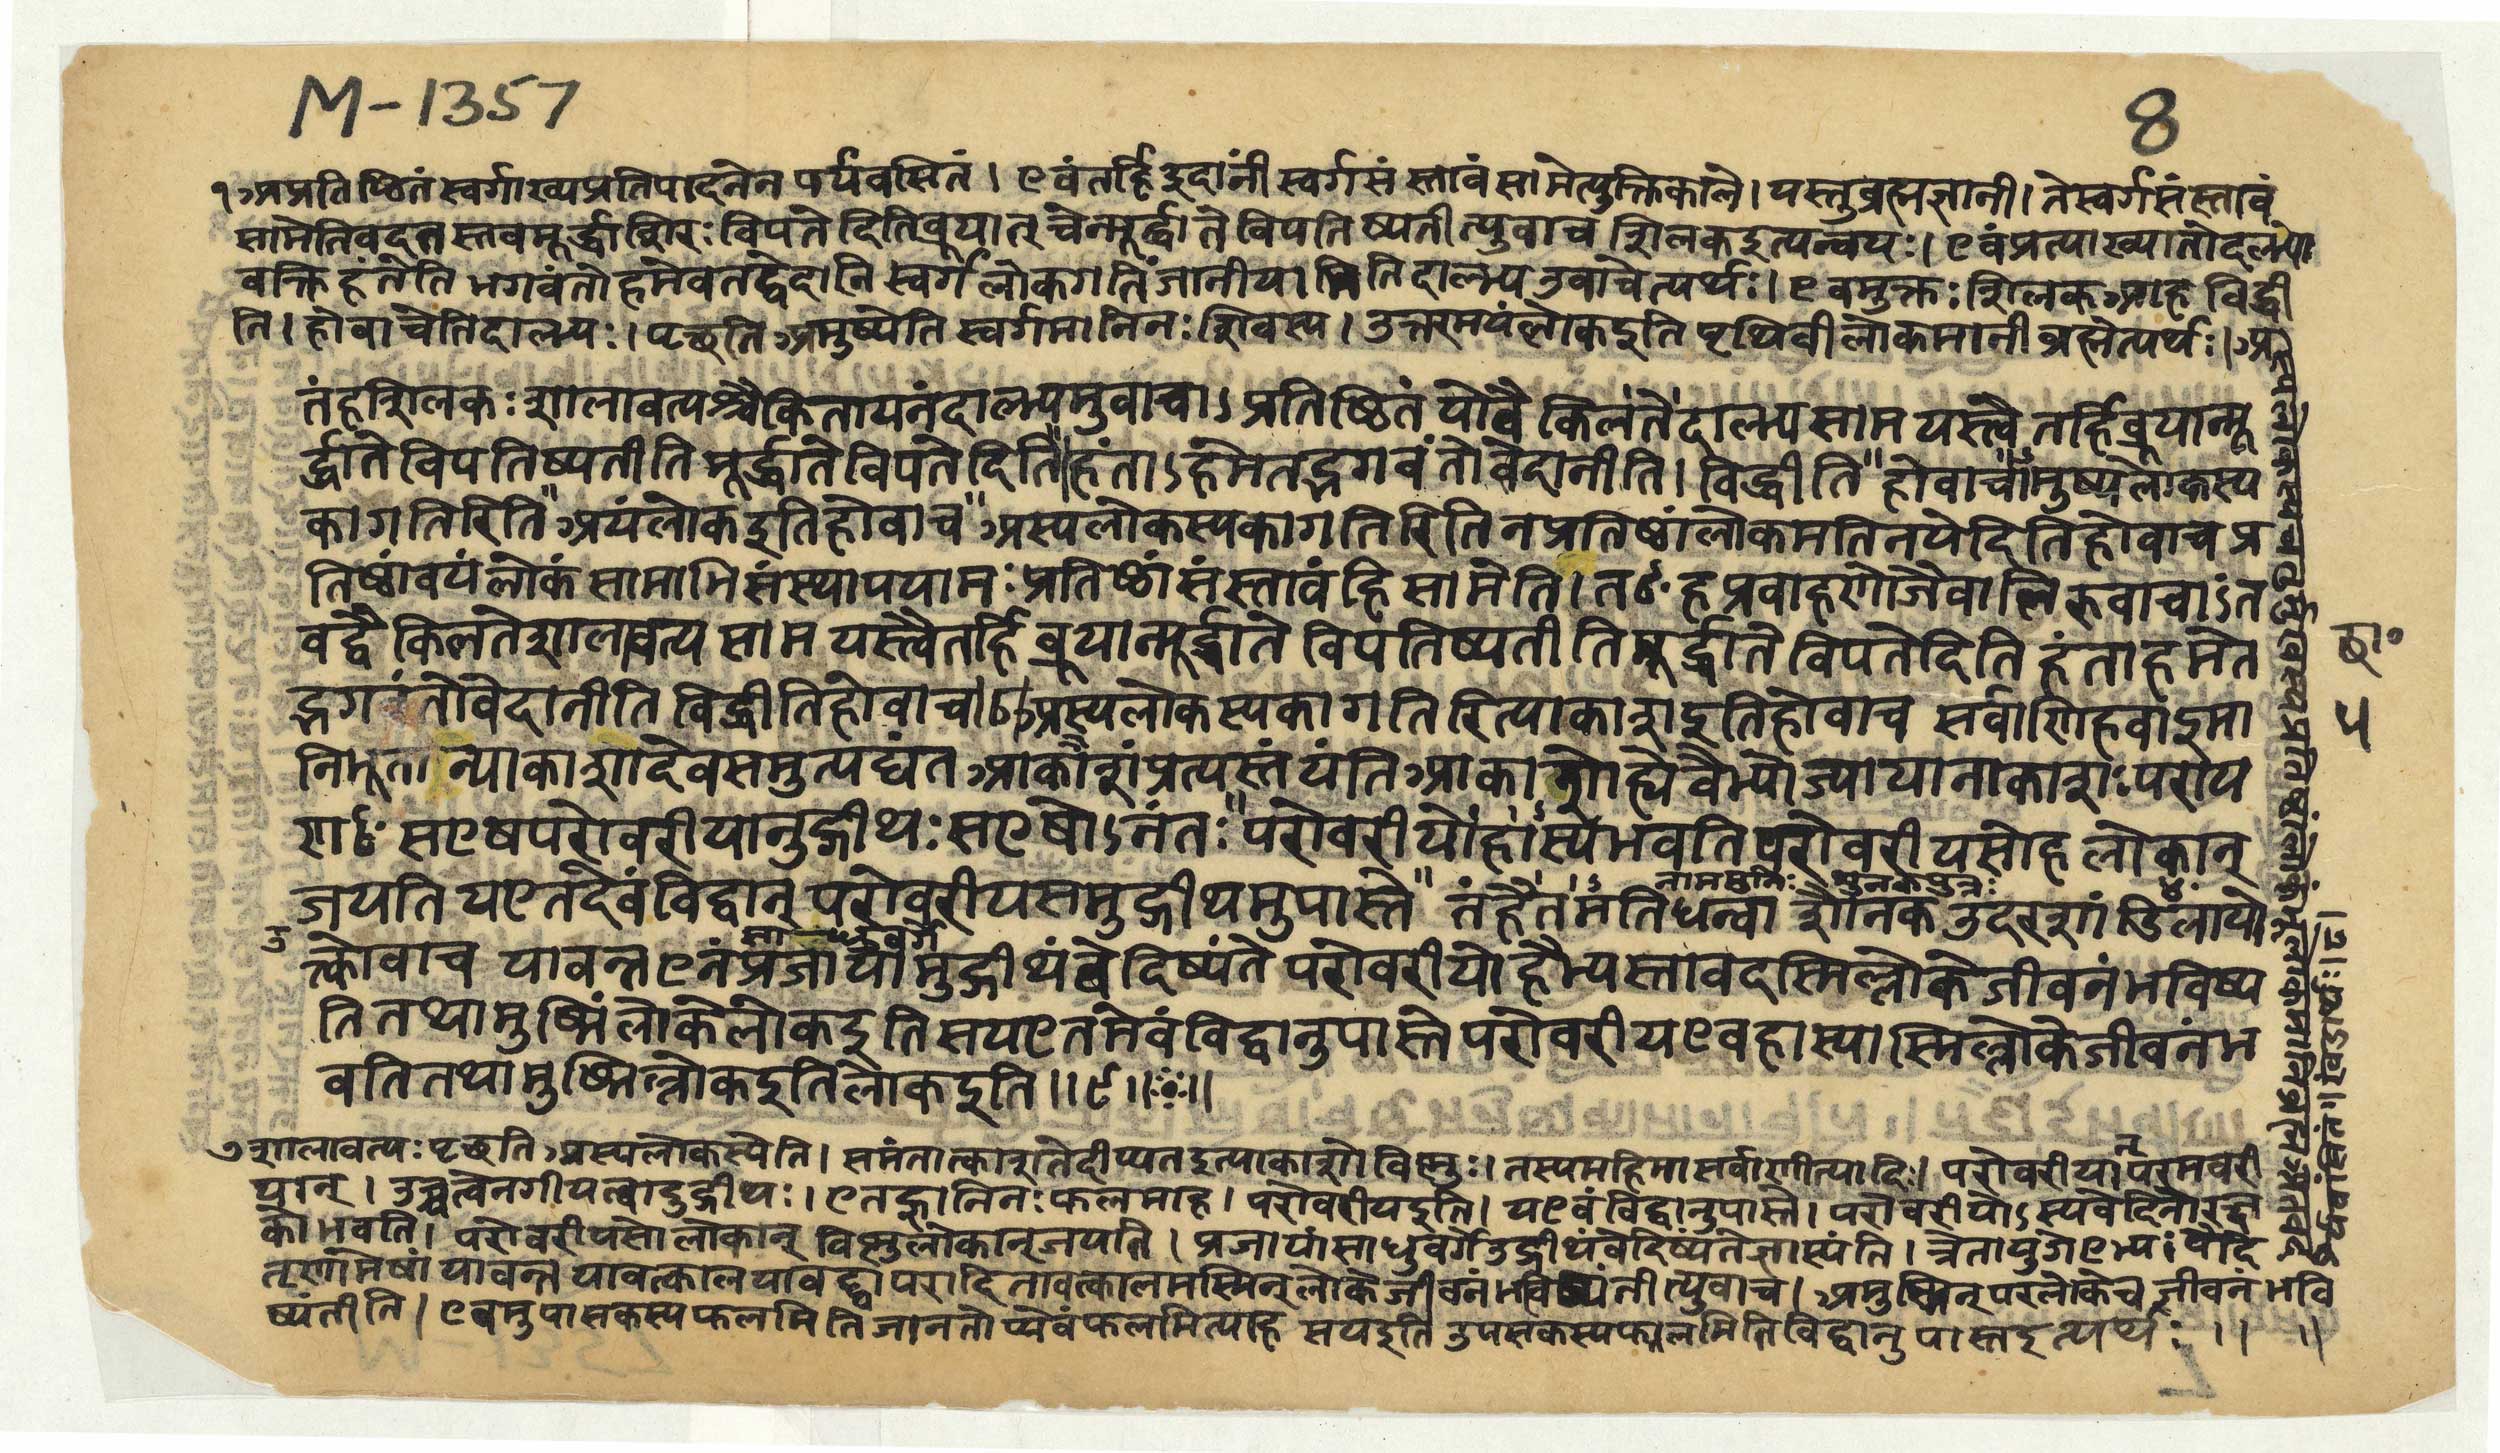 M-1357
8
१अप्रतिष्ठितं स्वर्गाख्यप्रतिपादनेन पर्यवसितं । एवंतर्हि इदानीं स्वर्गसंस्तावंसामेत्युक्तिकाले । यस्तुब्रह्मज्ञानी । तेस्वर्गसंस्तावं
सामेतिवदत स्तवमूर्द्धाशिरः विपतेदितिब्रूयात् चेन्मूर्द्धाते विपतिष्यतीत्युवाच शिलकइत्यन्वयः । एवंप्रत्याख्यातोदाल्भ्यो
वक्ति हंतेति भगवंतोहमेवतद्वेदानि स्वर्गलोकगतिंजानीयामिति दाल्भ्य उवाचेत्यर्थः । एवमुक्तः शिलकआह विद्धी
ति । होवाचेतिदाल्भ्यः । पृच्छति अमुष्येति स्वर्गमानिनः शिवस्य । उत्तरमयंलोकइति पृथिवीलोकमानी ब्रह्मेत्यर्थः । अ
तंहशिलकः शालावत्यश्चैकितायनंदाल्भ्यमुवाचाऽप्रतिष्ठितं योवै किलतेदाल्भ्यसाम यस्त्वै तर्हिब्रूयान्मू
र्द्धातेविपतिष्यतीति मूर्द्धातेविपतेदिति हंताऽहमेतद्भगवंतोवेदानीति । विद्धीति होवाचामुष्यलोकस्य
कागतिरिति अयंलोकइतिहोवाच अस्यलोकस्यकागतिरिति नप्रतिष्ठांलोकमतिनयेदितिहोवाच प्र
तिष्ठांवयंलोकं सामाभिसंस्थापयामः प्रतिष्ठासंस्तावंहि सामेति । तꣳ हप्रवाहणोजैवालिरुवाचाऽंत
वद्वै किलतेशालावत्य साम यस्त्वैतर्हि ब्रूयान्मूर्द्धाते विपतिष्यतीति मूर्द्धाते विपतेदिति हंताहमेत
द्भगवंतोवेदानीति विद्धीतिहोवाच ।८। अस्यलोकस्यकागतिरित्याकाशइतिहोवाच सर्वाणिहवाइमा
निभूतान्याकाशादेवसमुत्पद्यंत आकाशंप्रत्यस्तंयंति आकाशोह्येवैभ्योज्यायानाकाशः पराय
णꣳ सएषपरोवरीयानुद्गीथः सएषोऽनंतः परोवरीयोहास्यभवति परोवरीयसोह लोकान्
जयति यएतदेवंविद्वान् परोवरीयसमुद्गीथमुपास्ते तंहैतमतिधन्वा शौनकउदरशांडिल्यायो
नाममुनिः शुनकपुत्रः
उ
क्त्वोवाच यावन्तएनंप्रजायामुद्गीथंवेदिष्यंते परोवरीयोहैभ्यस्तावदस्मिल्लोकेजीवनंभविष्य
तितथामुष्मिंलोकेलोकइति सयएतमेवंविद्वानुपास्ते परोवरीयएवहास्यास्मिल्लोकेजीवनंभ
वतितथामुष्मिल्लोकइतिलोकइति ॥९॥
छा॰
५
७शालावत्यः पृच्छति अस्यलोकस्येति । समंतात्काशतेदीप्यतइत्याकाशो विष्णुः । तस्यमहिमासर्वाणीत्यादि । परोवरीयान् परमवरी
यान् । उच्चत्वेनगीयत्वादुद्गीथः । एतद्ज्ञानिनः फलमाह । परोवरीयइति । यएवंविद्वानुपास्ते । परोवरीयोऽस्यवेदिनोरक्ष
कोभवति । परोवरीयसोलोकान् विष्णुलोकान्जयति । प्रजायांसाधुवर्गेउद्गीथंवेदिष्यंतेज्ञास्यंति । त्रेतायुग
यावन्त यावत्कालयावद्द्वापरादि तावत्कालमस्मिन्लोकेजीवनंभविष्यंतीत्युवाच । अमुष्मिन्परलोकेच जीवनंभवि
ष्यंतीति । एवमुपासकस्यफलमिति जानतोप्येवंफलमित्याह सयइति उपासकस्यफलमिति विद्वानुपास्तइत्यर्थः ॥ ॥